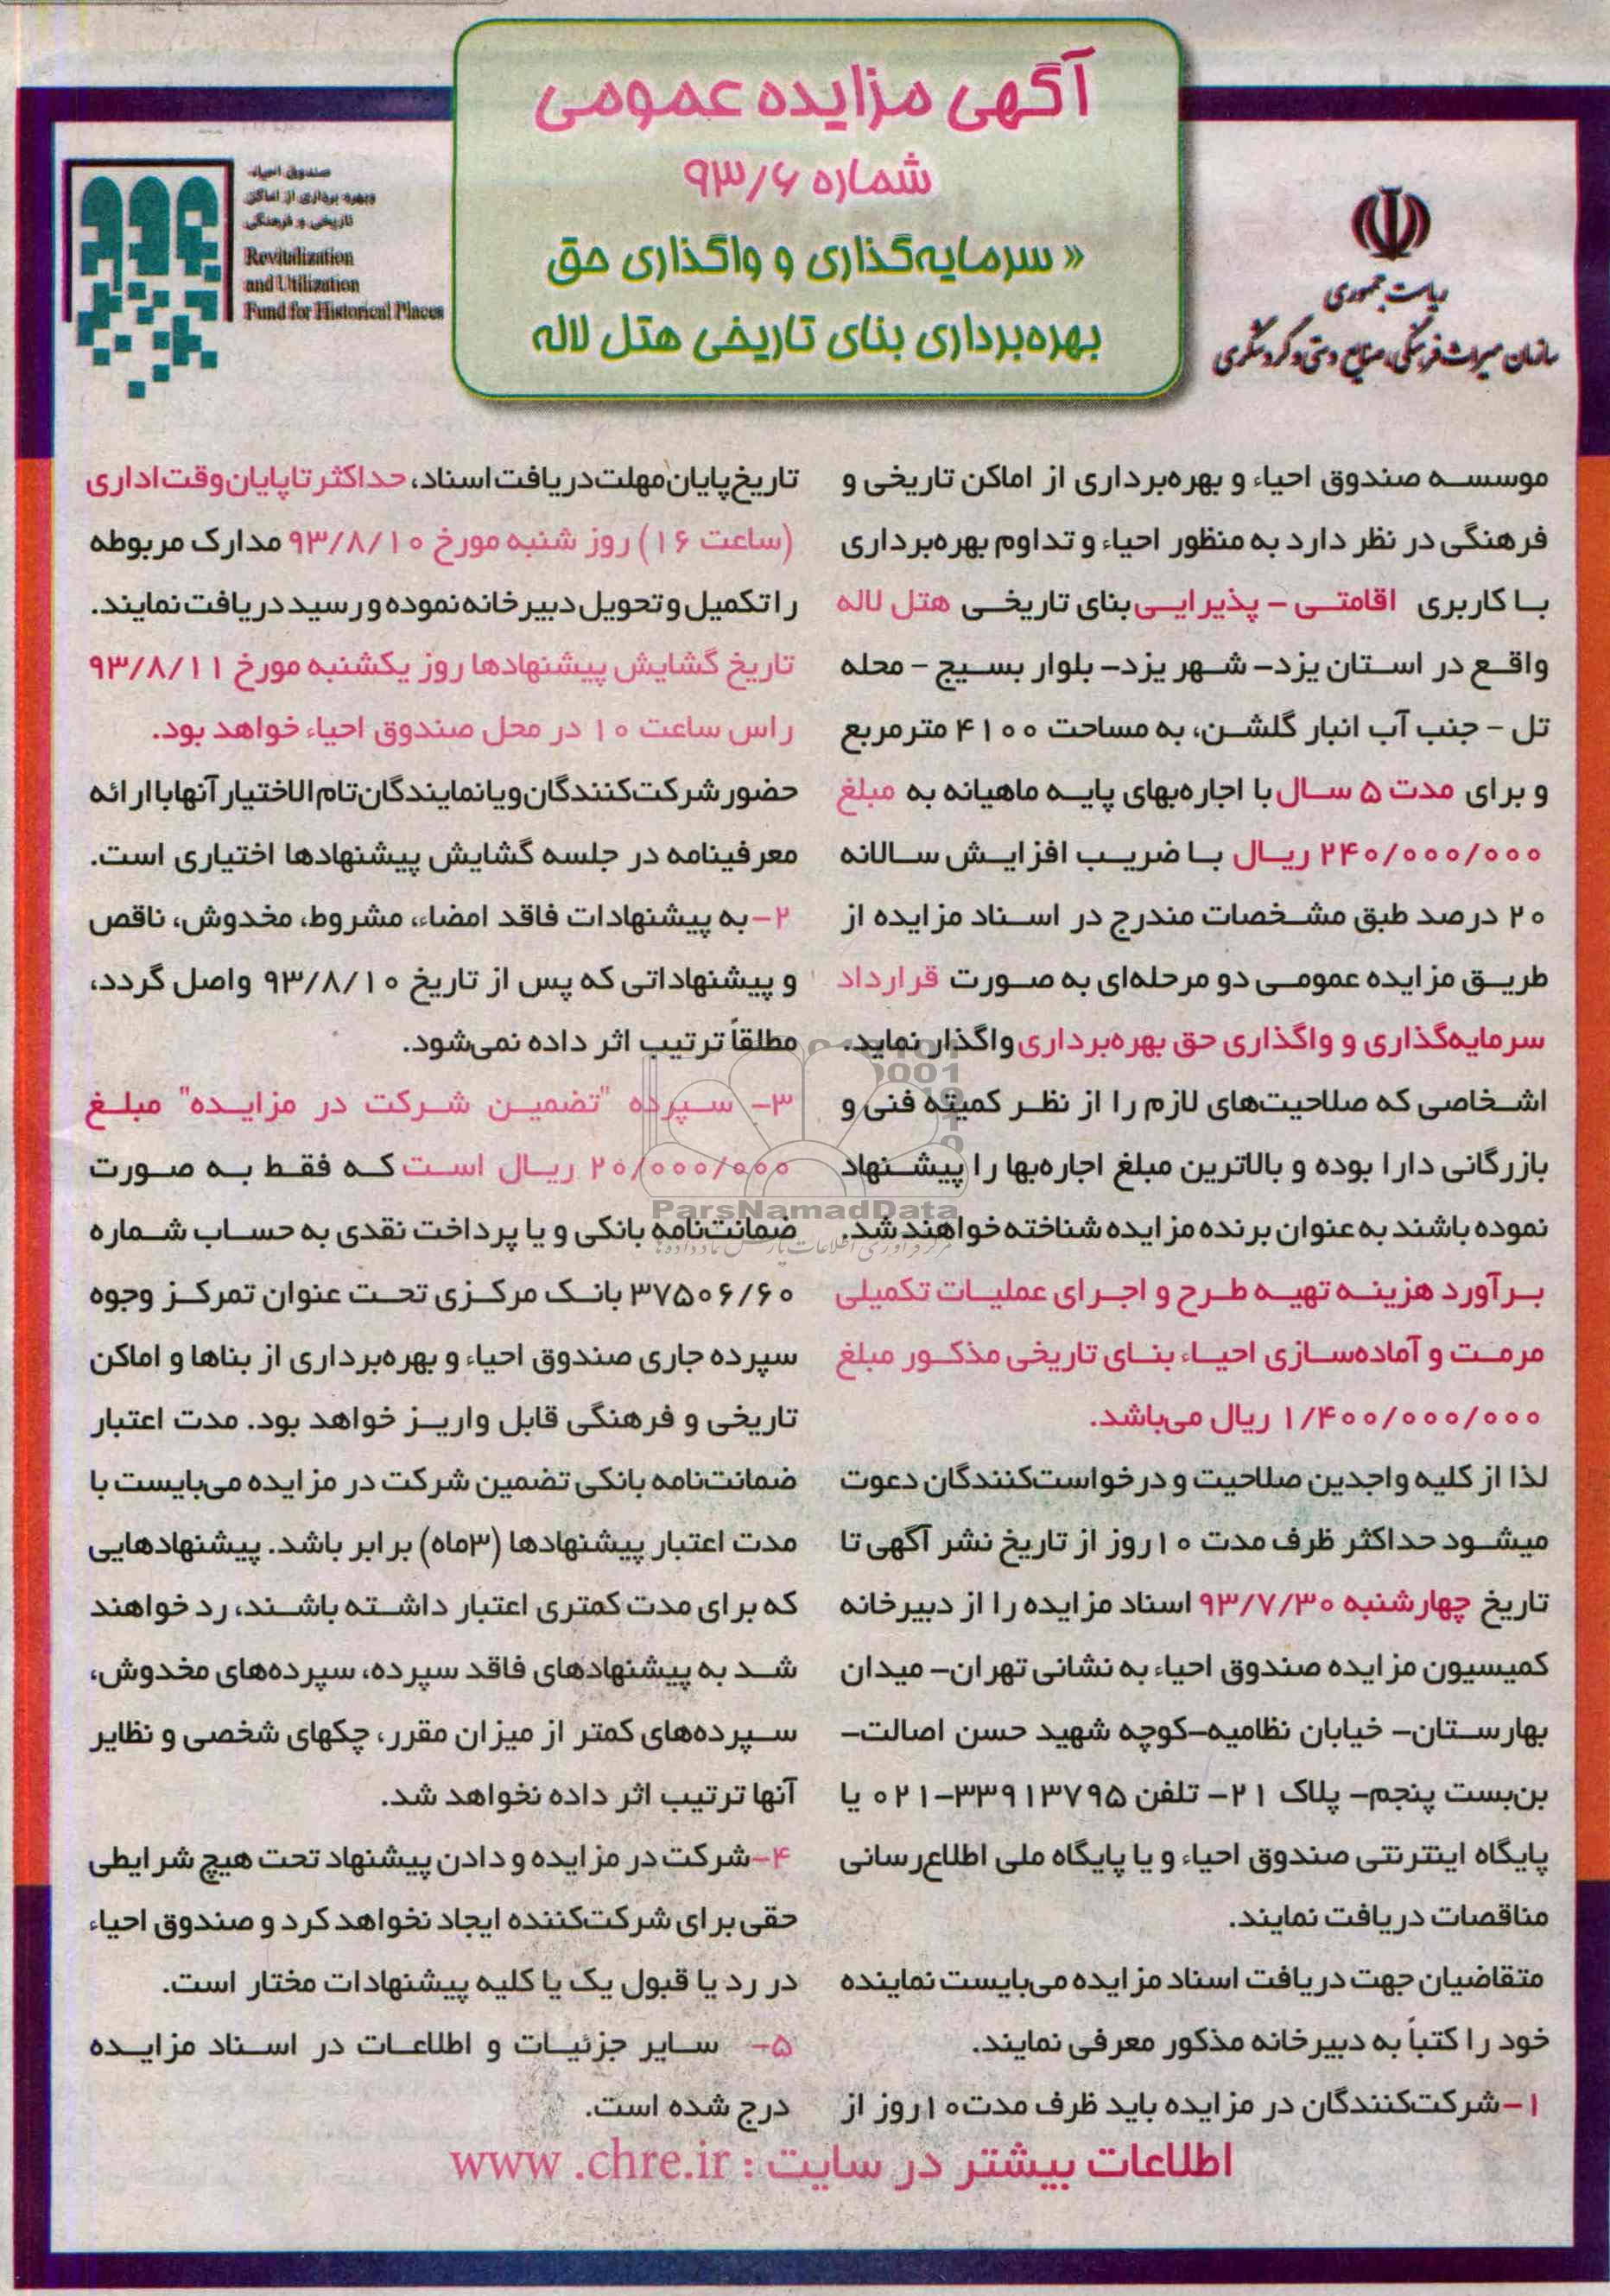 آگهی مزایده عمومی
شماره ۹۳/۶
« سرمایه‌گذاری و واگذاری حق
بهره‌برداری بنای تاریخی هتل لاله
ریاست جمهوری
سازمان میراث فرهنگی، صنایع دستی و گردشگری
صندوق احیاء
وبهره برداری از اماکن
تاریخی و فرهنگی
Revitalization
and Utilization
Fund for Historical Places
موسسه صندوق احیاء و بهره‌برداری از اماکن تاریخی و
فرهنگی در نظر دارد به منظور احیاء و تداوم بهره‌برداری
با کاربری اقامتی - پذیرایی بنای تاریخی هتل لاله
واقع در استان یزد- شهر یزد- بلوار بسیج - محله
تل - جنب آب انبار گلشن، به مساحت ۴۱۰۰ مترمربع
و برای مدت ۵ سال با اجاره‌بهای پایه ماهیانه به مبلغ
۲۴۰/۰۰۰/۰۰۰ ریال با ضریب افزایش سالانه
۲۰ درصد طبق مشخصات مندرج در اسناد مزایده از
طریق مزایده عمومی دو مرحله‌ای به صورت قرارداد
سرمایه‌گذاری و واگذاری حق بهره‌برداری واگذار نماید.
اشخاصی که صلاحیت‌های لازم را از نظر کمیته فنی و
بازرگانی دارا بوده و بالاترین مبلغ اجاره‌بها را پیشنهاد
نموده باشند به عنوان برنده مزایده شناخته خواهند شد.
برآورد هزینه تهیه طرح و اجرای عملیات تکمیلی
مرمت و آماده‌سازی احیاء بنای تاریخی مذکور مبلغ
۱/۴۰۰/۰۰۰/۰۰۰ ریال می‌باشد.
لذا از کلیه واجدین صلاحیت و درخواست‌کنندگان دعوت
میشود حداکثر ظرف مدت ۱۰روز از تاریخ نشر آگهی تا
تاریخ چهارشنبه ۹۳/۷/۳۰ اسناد مزایده را از دبیرخانه
کمیسیون مزایده صندوق احیاء به نشانی تهران- میدان
بهارستان- خیابان نظامیه-کوچه شهید حسن اصالت-
بن‌بست پنجم- پلاک ۲۱- تلفن ۳۳۹۱۳۷۹۵-۰۲۱ یا
پایگاه اینترنتی صندوق احیاء و یا پایگاه ملی اطلاع‌رسانی
مناقصات دریافت نمایند.
متقاضیان جهت دریافت اسناد مزایده می‌بایست نماینده
خود را کتباً به دبیرخانه مذکور معرفی نمایند.
۱-شرکت‌کنندگان در مزایده باید ظرف مدت۱۰روز از
تاریخ پایان مهلت دریافت اسناد، حداکثر تا پایان وقت اداری
(ساعت ۱۶) روز شنبه مورخ ۹۳/۸/۱۰ مدارک مربوطه
را تکمیل و تحویل دبیرخانه نموده و رسید دریافت نمایند.
تاریخ گشایش پیشنهادها روز یکشنبه مورخ ۹۳/۸/۱۱
راس ساعت ۱۰ در محل صندوق احیاء خواهد بود.
حضور شرکت‌کنندگان و یا نمایندگان تام‌الاختیار آنها با ارائه
معرفینامه در جلسه گشایش پیشنهادها اختیاری است.
۲-به پیشنهادات فاقد امضاء، مشروط، مخدوش، ناقص
و پیشنهاداتی که پس از تاریخ ۹۳/۸/۱۰ واصل گردد،
مطلقاً ترتیب اثر داده نمی‌شود.
۳- سپرده "تضمین شرکت در مزایده" مبلغ
۲۰/۰۰۰/۰۰۰ ریال است که فقط به صورت
ضمانت‌نامه بانکی و یا پرداخت نقدی به حساب شماره
۳۷۵۰۶/۶۰ بانک مرکزی تحت عنوان تمرکز وجوه
سپرده جاری صندوق احیاء و بهره‌برداری از بناها و اماکن
تاریخی و فرهنگی قابل واریز خواهد بود. مدت اعتبار
ضمانت‌نامه بانکی تضمین شرکت در مزایده می‌بایست با
مدت اعتبار پیشنهادها (۳ماه) برابر باشد. پیشنهادهایی
که برای مدت کمتری اعتبار داشته باشند، رد خواهند
شد به پیشنهادهای فاقد سپرده، سپرده‌های مخدوش،
سپرده‌های کمتر از میزان مقرر، چکهای شخصی و نظایر
آنها ترتیب اثر داده نخواهد شد.
۴-شرکت در مزایده و دادن پیشنهاد تحت هیچ شرایطی
حقی برای شرکت‌کننده ایجاد نخواهد کرد و صندوق احیاء
در رد یا قبول یک یا کلیه پیشنهادات مختار است.
۵- سایر جزئیات و اطلاعات در اسناد مزایده
درج شده است.
اطلاعات بیشتر در سایت : www .chre.ir
ParsNamadData